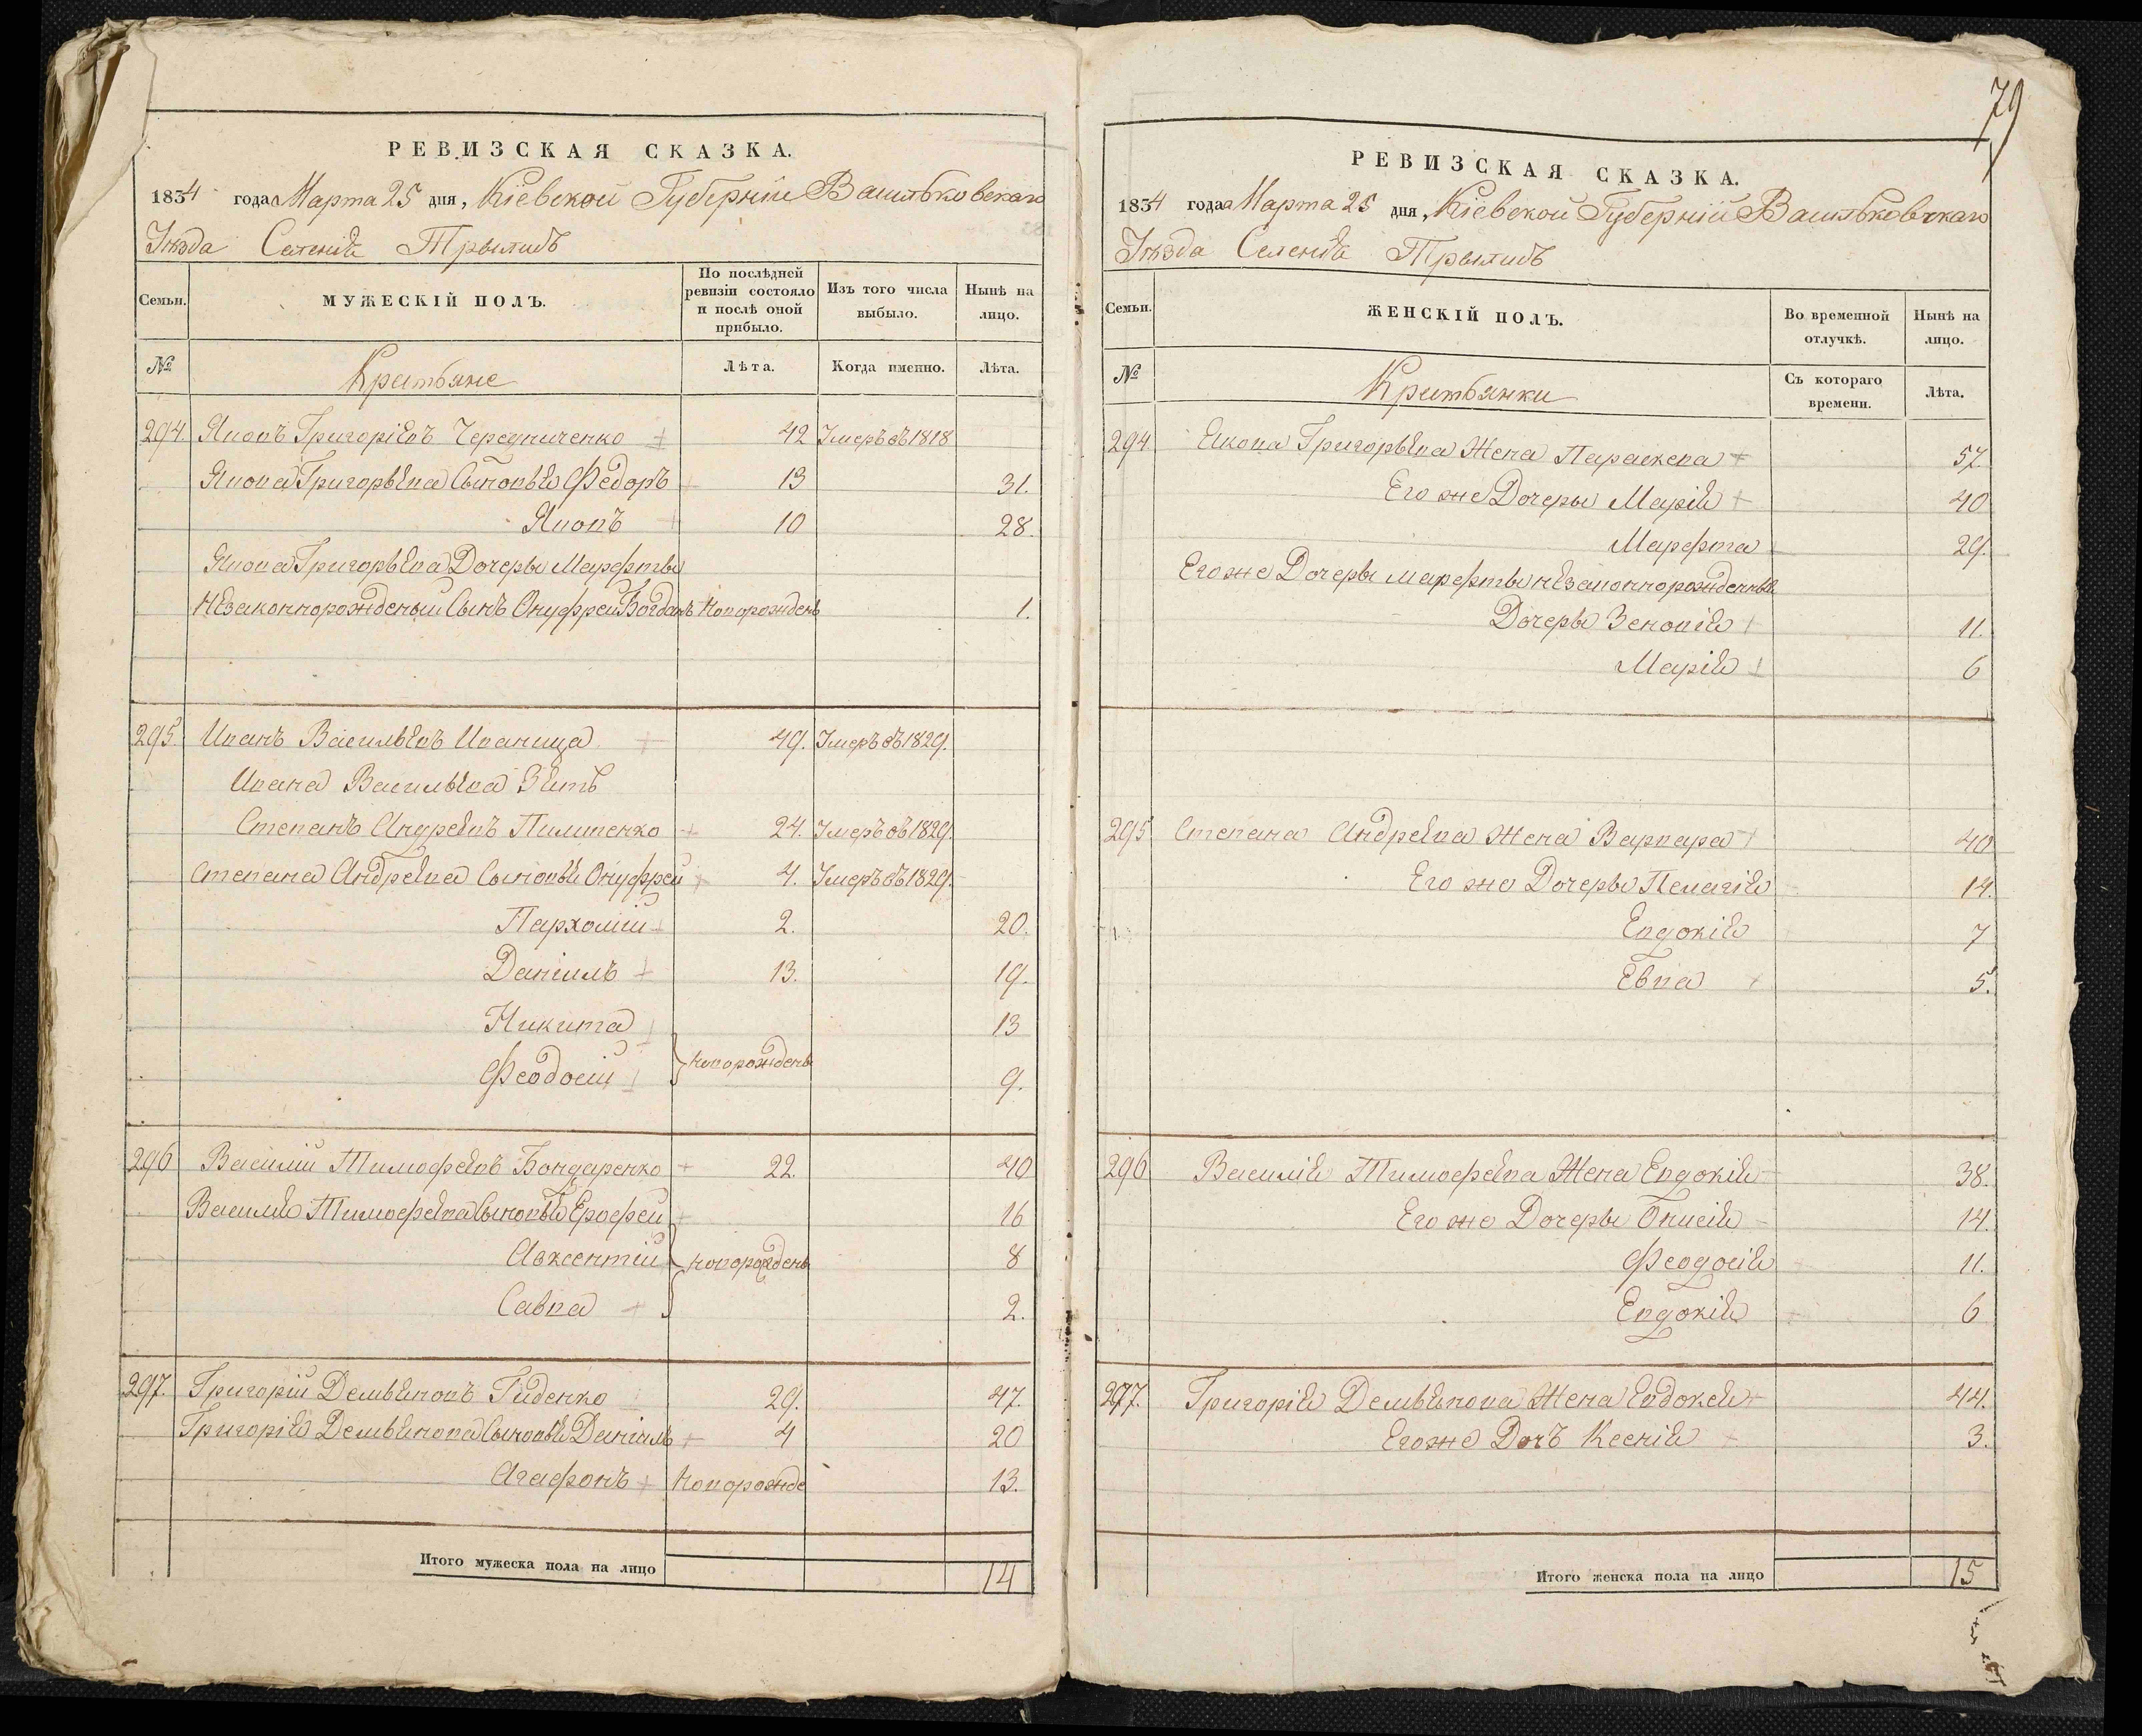 РЕВИЗСКАЯ СКАЗКА.
1834 года Марта 25 дня, Кіевской Губерніи Васильковскаго
Уѣзда Селенія Трылисъ
Семьи.
МУЖЕСКІЙ ПОЛЪ.
По послѣдней ревизіи состояло и послѣ оной прибыло.
Изъ того числа выбыло.
Нынѣ на лицо.
№
Крестьяне
Лѣта.
Когда именно.
Лѣта.
294 Яковъ Григоріевъ Чередниченко 42 Умеръ въ 1818
Якова Григорьева Сыновья Федоръ 13 31.
Яковъ 10 28.
Якова Григорьева Дочеры Марфты
Незаконнорожденый Сынъ Онуфрей Богданъ Новорожденъ 1.
295. Иванъ Васильевъ Иваница 49. Умеръ въ 1829.
Ивана Васильева Зять
Степанъ Андреевъ Пилипенко 24. Умеръ въ 1829.
Степана Андреева Сыновья Онуфрей 4. Умеръ въ 1829.
Пархомій 2. 20.
Даніилъ 13. 19.
Никита 13
Феодосій новорожденъ 9.
296 Василій Тимофеевъ Бондаренко 22. 40
Василія Тимофеева Сыновья Ерофей 16
Авксентій новорожденъ 8
Савва 2.
297. Григорій Демьяновъ Гиденко 29. 47.
Григорія Демьянова Сыновья Даніилъ 4 20
Агафонъ Новорожде 13.
Итого мужеска пола на лицо 14
79
РЕВИЗСКАЯ СКАЗКА.
1834 года Марта 25 дня, Кіевской Губерніи Васильковскаго
Уѣзда Селенія Трылисъ
Семьи.
ЖЕНСКІЙ ПОЛЪ.
Во временной отлучкѣ.
Нынѣ на лицо.
№
Крестьянки
Съ котораго времени.
Лѣта.
294 Якова Григорьева Жена Параскева 57.
Его же Дочеры Марія 40
Марфта 29.
Его же Дочеры Марфты незаконнорожденные
Дочеры Зеновія 11.
Марія 6
295 Степана Андреева Жена Варвара 40
Его же Дочеры Пелагія 14.
Евдокія 7
Евва 5.
296 Василія Тимофеева Жена Евдокія 38.
Его же Дочеры Онисія 14.
Феодосія 11.
Евдокія 6
297. Григорія Демьянова Жена Евдокея 44.
Его же Дочъ Ксенія 3.
Итого женска пола на лицо 15